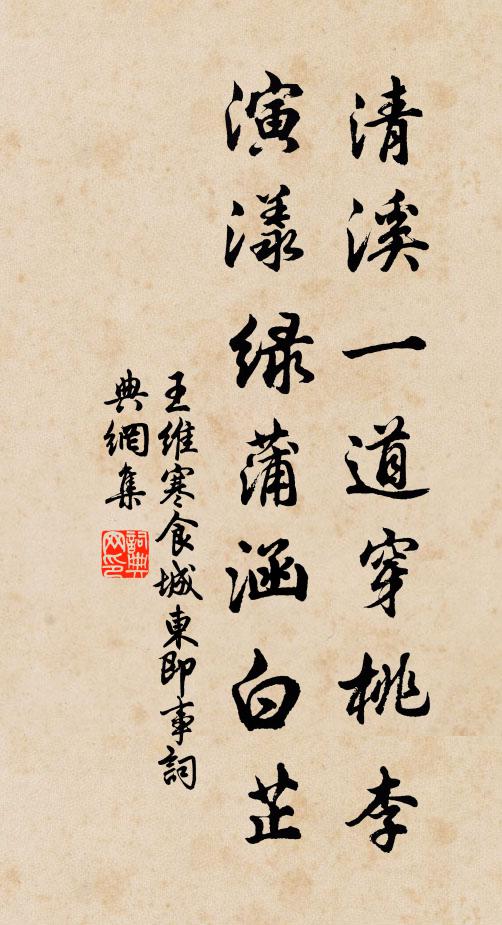 清溪一道穿桃李
演漾绿蒲涵白芷
王維寒食城東即事詞
典網集
詞典网印